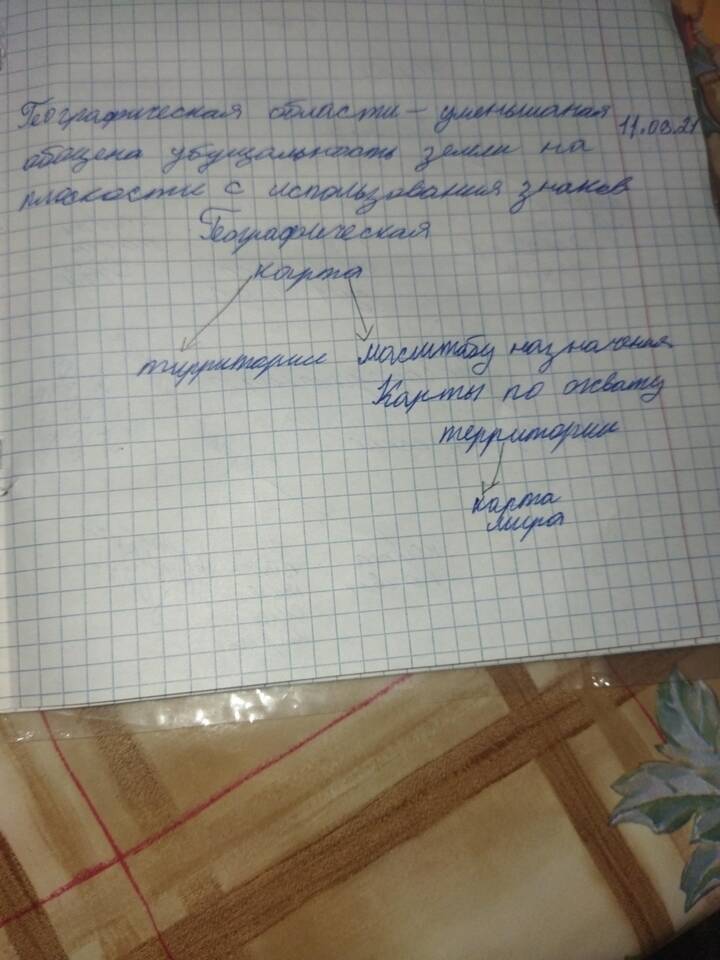 Географическая области – уменьшаная
11.09.21
обощена убущальность земли на
плоскости с использования знаков
Географическая
карта
территории масштабу назначения
Карты по охвату
территории
карта
мира